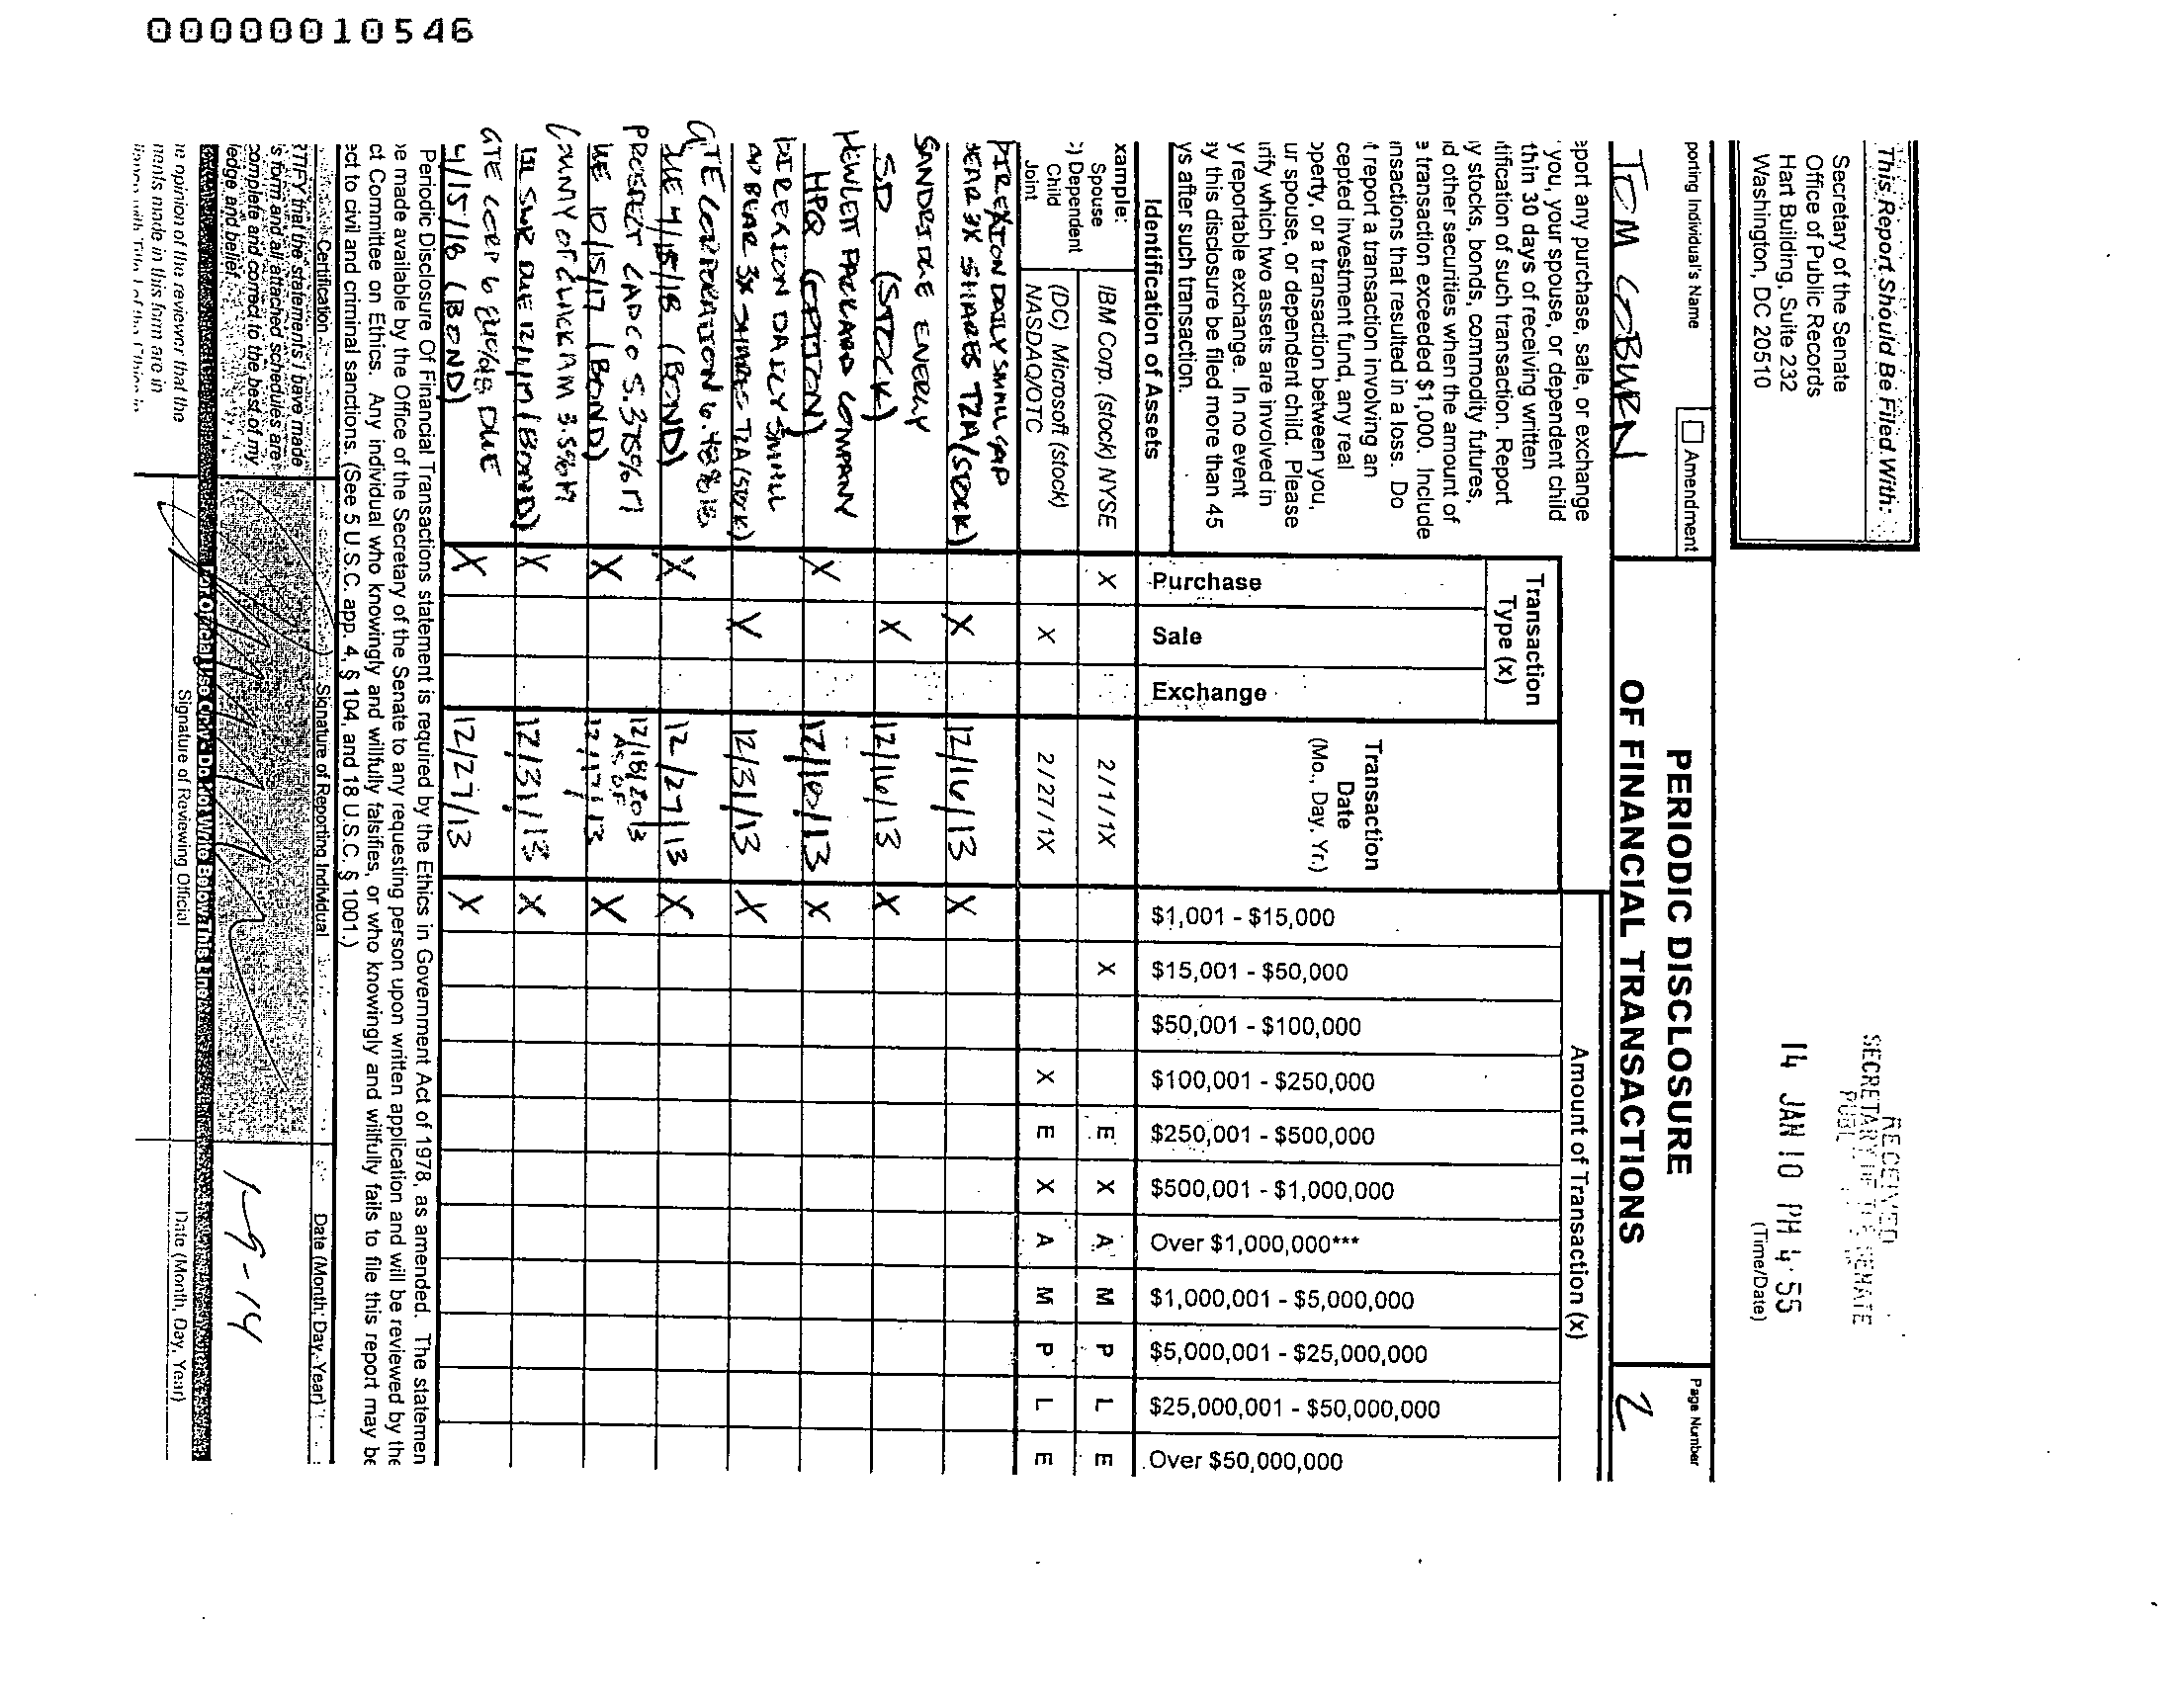 00000010546
This Report Should Be Filed With:
Secretary of the Senate
Office of Public Records
Hart Building, Suite 232
Washington, DC 20510
RECEIVED
SECRETARY OF THE SENATE
14 JAN 10 PM 4:55
(Time/Date)
porting Individual's Name
Amendment
TOM COBURN
PERIODIC DISCLOSURE
OF FINANCIAL TRANSACTIONS
Page Number
2
eport any purchase, sale, or exchange
you, your spouse, or dependent child
thin 30 days of receiving written
tification of such transaction. Report
y stocks, bonds, commodity futures,
d other securities when the amount of
e transaction exceeded $1,000. Include
nsactions that resulted in a loss. Do
t report a transaction involving an
cepted investment fund, any real
operty, or a transaction between you,
ur spouse, or dependent child. Please
rify which two assets are involved in
y reportable exchange. In no event
ay this disclosure be filed more than 45
ys after such transaction.
Identification of Assets
Transaction
Type (x)
Purchase
Sale
Exchange
Transaction
Date
(Mo., Day, Yr.)
Amount of Transaction (x)
$1,001 - $15,000
$15,001 - $50,000
$50,001 - $100,000
$100,001 - $250,000
$250,001 - $500,000
$500,001 - $1,000,000
Over $1,000,000***
$1,000,001 - $5,000,000
$5,000,001 - $25,000,000
$25,000,001 - $50,000,000
Over $50,000,000
xample:
Spouse
) Dependent
Child
Joint
IBM Corp. (stock) NYSE X 2/1/1X X E X A M P L E
(DC) Microsoft (stock)
NASDAQ/OTC X 2/27/1X X E X A M P L E
DIREXION DAILY SMALL CAP
BEAR 3X SHARES TZA (STOCK) X 12/16/13 X
SANDRIDGE ENERGY
SD (STOCK) X 12/16/13 X
HEWLETT PACKARD COMPANY
HPQ (OPTION) X 12/10/13 X
DIREXION DAILY SMALL
CAP BEAR 3X SHARES TZA (STOCK) X 12/31/13 X
GTE CORPORATION 6.48%
DUE 4/15/18 (BOND) X 12/27/13 X
PROCTER 5.375%
DUE 10/15/17 (BOND) X 12/18/2013
AS OF
12/17/13 X
COUNTY OF 3.5%
DUE (BOND) X 12/31/13 X
GTE CORP DUE
4/15/18 (BOND) X 12/27/13 X
Periodic Disclosure Of Financial Transactions statement is required by the Ethics in Government Act of 1978, as amended. The statemen
be made available by the Office of the Secretary of the Senate to any requesting person upon written application and will be reviewed by the
ct Committee on Ethics. Any individual who knowingly and willfully falsifies, or who knowingly and willfully fails to file this report may be
ect to civil and criminal sanctions. (See 5 U.S.C. app. 4, § 104, and 18 U.S.C. § 1001.)
Certification
Signature of Reporting Individual
Date (Month, Day, Year)
RTIFY that the statements I have made
s form and all attached schedules are
complete and correct to the best of my
ledge and belief.
1-9-14
For Official Use Only - Do Not Write Below This Line
e opinion of the reviewer that the
ments made in this form are in
Signature of Reviewing Official
Date (Month, Day, Year)